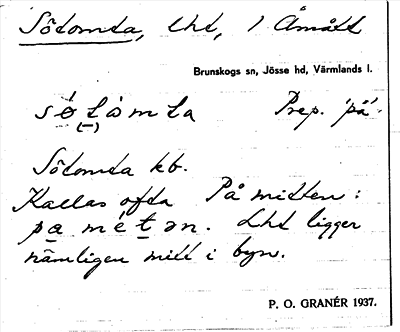 Sötomta, lht, 1 Åmått
Brunskogs sn, Jösse hd, Värmlands l.
Prep. 'på'.
Sötomta kb.
Kallas ofta På mitten:
Lht ligger
nämligen mitt i byn.
P. O. GRANÉR 1937.